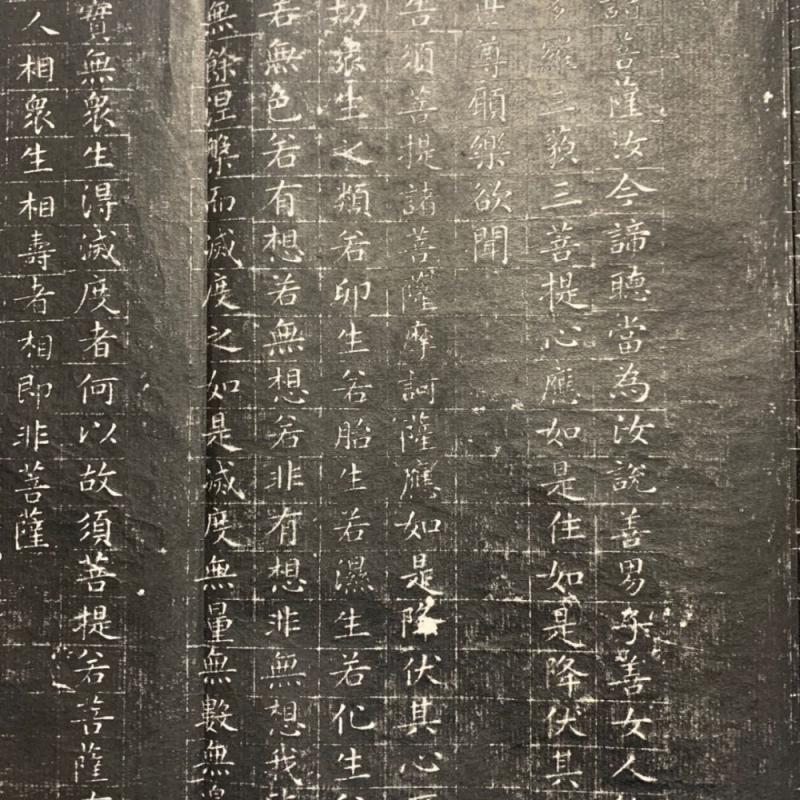 菩薩汝今諦聽當為汝說善男子善女人
三藐三菩提心應如是住如是降伏其
世尊願樂欲聞
告須菩提諸菩薩摩訶薩應如是降伏其心
切衆生之類若卵生若胎生若濕生若化生若
若無色若有想若無想若非有想非無想我
無餘涅槃而滅度之如是滅度無量無數無邊
實無衆生得滅度者何以故須菩提若菩薩有
人相衆生相壽者相即非菩薩